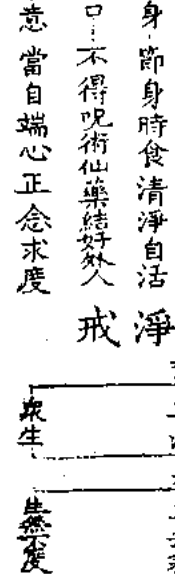 身-節身時食清淨自活
口-不得呪術仙藥結好外人
意 當自端心正念求度
淨
戒
衆生